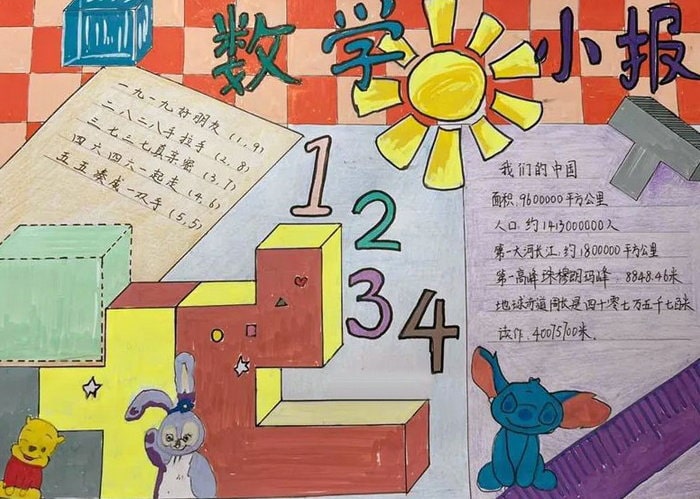 数学小报
一九一九好朋友 (1,9)
二八二八手拉手 (2,8)
三七三七真亲密 (3,7)
四六四六一起走 (4,6)
五五凑成一双手 (5,5)
1
2
3
4
我们的中国
面积:9600000平方公里
人口:约1413000000人
第一大河长江:约1800000平方公里
第一高峰珠穆朗玛峰:8848.46米
地球赤道周长是四十零七万五千七百米
读作:40075700米.